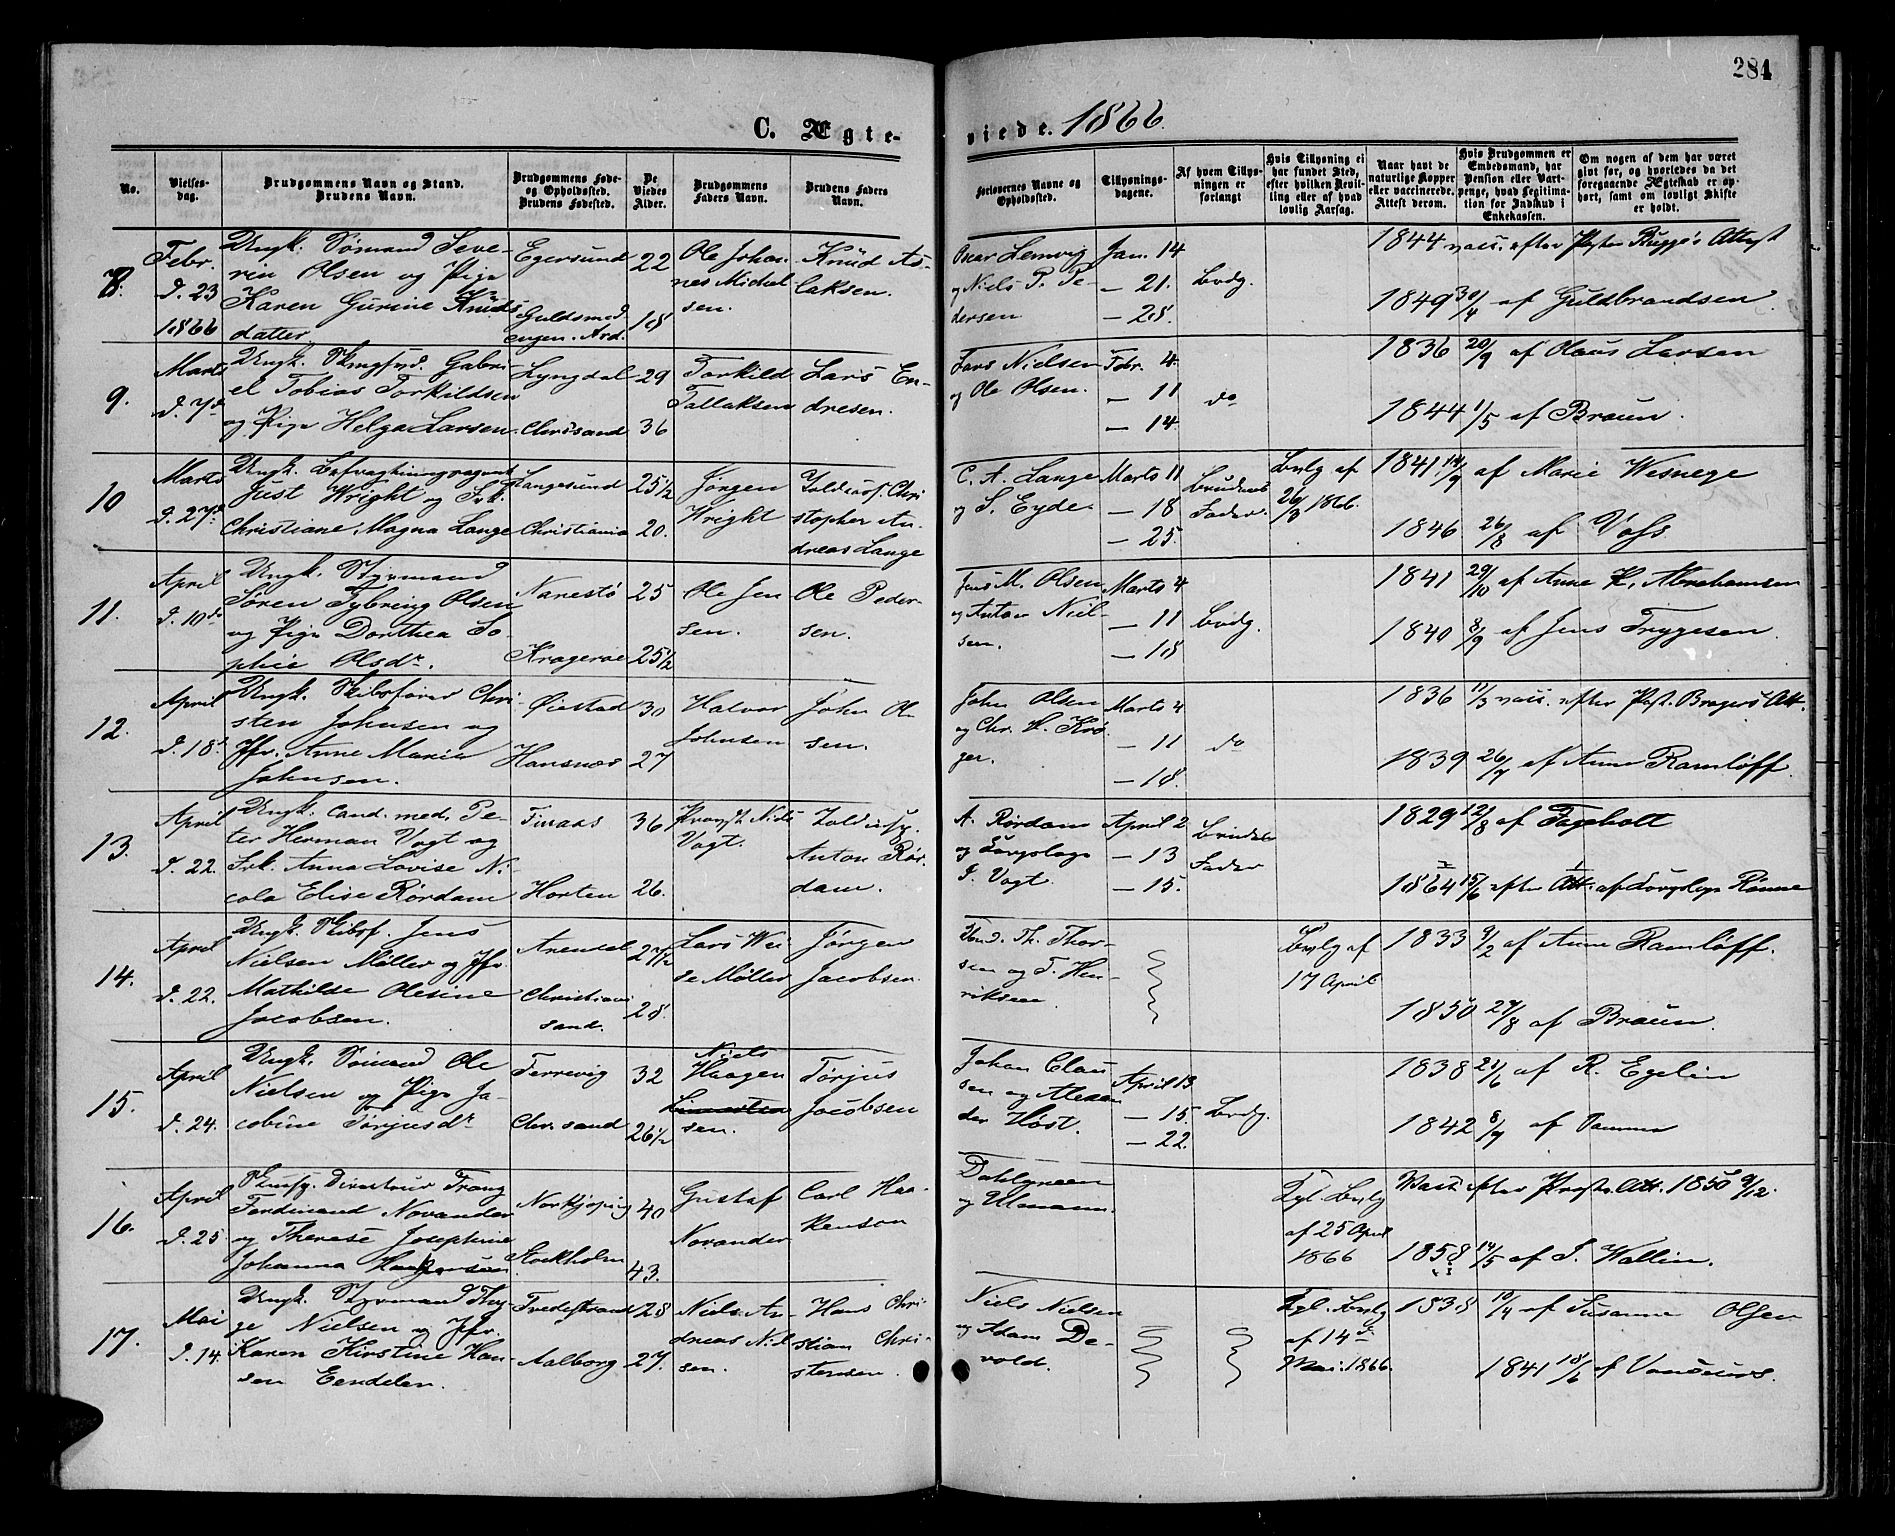 284
C. Ægte-
viede. 1866.
No.
Vielses-
dag.
Brudgommens Navn og Stand.
Brudens Navn.
Brudgommens Føde-
og Opholdssted.
Brudens Fødested.
De
Viedes
Alder.
Brudgommens
Faders Navn.
Brudens Faders
Navn.
Forlovernes Navne og
Opholdssted.
Tillysnings-
dagene.
Af hvem Tillys-
ningen er
forlangt
Hvis Tillysning ei
har fundet Sted,
efter hvilken Bevil-
ling eller af hvad
lovlig Aarsag.
Naar havt de
naturlige Kopper
eller vaccinerede.
Attest derom.
Hvis Brudgommen er
Embedsmand, har
Pension eller Vart-
penge, hvad Legitima-
tion for Indskud i
Enkekassen.
Om nogen af dem har været
gift før, og hvorledes da det
foregaaende Ægteskab er op-
hørt, samt om lovligt Skifte
er holdt.
8.
Febr.
d. 23
1866
Ungk. Sømand Seve-
rin Olsen og Pige
Karen Gurine Knuds
datter
Egersund
Guldsmed
engen. Ard.
22
18
Ole Johan
nes Michel
sen.
Knud As-
laksen.
Oscar Lemvig
og Niels P. Pe
dersen
Jan. 14
— 21.
— 28.
Brdg.
1844 vacc. efter Præsten Bugge's Attest
1849 30/4 af Guldbrandsen.
9.
Marts
d. 7de
Ungk. Gabri-
el Tobias Torkildsen
og Pige Helga Larsen.
Lyngdal
Chrissand
29
36
Torkild
Tallaksen
Lars En-
dresen.
Lars Nielsen
og Ole Olsen.
Febr. 4.
— 11
— 14
do
1836 20/9 af Olaus Larsen
1844 1/5 af Braun.
10
Marts
d. 27de
Ungk. Befragtningsagent
Just Wright og Frk.
Christiane Magna Lange
Langesund
Christiania
25 1/2
20.
Jørgen
Wright
Toldinsp. Chri
stopher An-
dreas Lange
C. A. Lange
og S. Eyde
Marts 11
— 18
— 25.
Brudens
Fader.
Bvlg af
26/3 1866.
1841 14/9 af Marie Wesnege
1846 26/8 af Voss.
11.
April
d. 10de
Ungk. Styrmand
Søren Tybring Olsen
og Pige Dorthea So-
phie Olsdr.
Narestø
Krageroe
25
25 1/2
Ole Jen
sen.
Ole Peder-
sen.
Jens M. Olsen
og Anton Niel-
sen.
Marts 4
— 11
— 18
Brdg.
1841 29/10 af Anne K. Abrahamsen
1840 8/9 af Jens Trygesen.
12.
April
d. 18de
Ungk. Skibsfører Chri-
sten Johnsen og
Jfr. Anne Marie
Johnsen.
Øiestad
Hansnæs
30
27
Halvor
Johnsen
John Ol
sen.
John Olsen
og Chr. H. Krø
ger.
Marts 4
— 11
— 18.
do
1836 11/3 vacc. efter Præst. Att.
1839 26/7 af Anne Ramløff.
13.
April
d. 22.
Ungk. Cand. med. Pe-
ter Herman Vogt og
Frk. Anna Lovise Ni-
cola Elise Rørdam
Tinaas
Horten
36
26.
Provst Niels
Vogt.
Toldinsp.
Anton Rør-
dam.
A. Rørdam
og
J. Vogt.
April 2
— 13
— 15.
Brudens
Fader
1829 12/8 af Fageholt
1864 15/6 efter Att. af Rønne
14.
April
d. 22.
Ungk. Skibsf. Jens
Nielsen Møller og Jfr.
Mathilde Olesine
Jacobsen.
Arendal
Christian
sand.
27 1/2
28.
Lars Wei
se Møller
Jørgen
Jacobsen.
Th. Thor-
sen og T. Hen-
riksen.
Bvlg af
17 April
1833 9/2 af Anne Ramløff.
1850 27/8 af Braun.
15.
April
d. 24.
Ungk. Sømand Ole
Nielsen og Pige Ja-
cobine Tørjusdr
Terrevig
Chr. sand
32
26 1/2
Niels
Haagen
sen.
Tørjus
Jacobsen
Johan Clau
sen og Alexan
der Høst.
April 13
— 15.
— 22.
Brdg.
1838 21/6 af R. Egelin
1842 8/9 af Samme
16.
April
d. 25
Directeur Franz
Ferdinand Norander
og Therese Josephine
Johanna
Norkjøping
Stockholm
40
43.
Gustaf
Norander
Carl Haa-
kenson
Dahlgreen
og Ulmann.
Kgl. Bvlg
af 25 April
1866
Vacc. efter Præste Att. 1850 9/12.
1858 14/5 af J. Wallin.
17.
Mai
d. 14.
Ungk. Styrmand Thy-
ge Nielsen og Jfr.
Karen Kirstine Han-
sen Eendelen.
Tvedestrand
Aalborg
28
27.
Niels An-
dreas Niel
sen.
Hans Chri-
stian Chri-
stensen.
Niels Nielsen
og Adam De-
vold.
Kgl. Bvlg
af 14de
Mai. 1866.
1838 10/4 af Susanne Olsen
1841 18/6 af